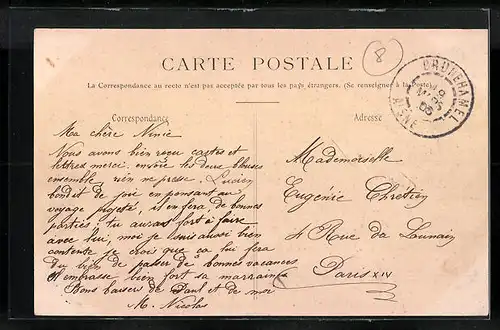 CARTE POSTALE
8
La Correspondance au recto n'est pas acceptée par tous les pays étrangers. (Se renseigner à la Poste)
BRUNEHAMEL
AISNE
Correspondance
Adresse
Ma chère Ninie
Nous avons bien reçu cartes et
lettres merci, envoie les deux blouses
ensemble rien ne presse, Lucien
bondit de joie en pensant au
voyage projeté, il en fera de bonnes
parties, tu auras fort à faire
avec lui, moi je suis aussi bien
contente je crois que ça lui fera
du bien de passer de bonnes vacances
Il embrasse bien fort sa marraine
Bons baisers de Paul et de moi
M. Nicolas
Mademoiselle
Eugénie Chrétien
4 Rue du Lunain
Paris XIV